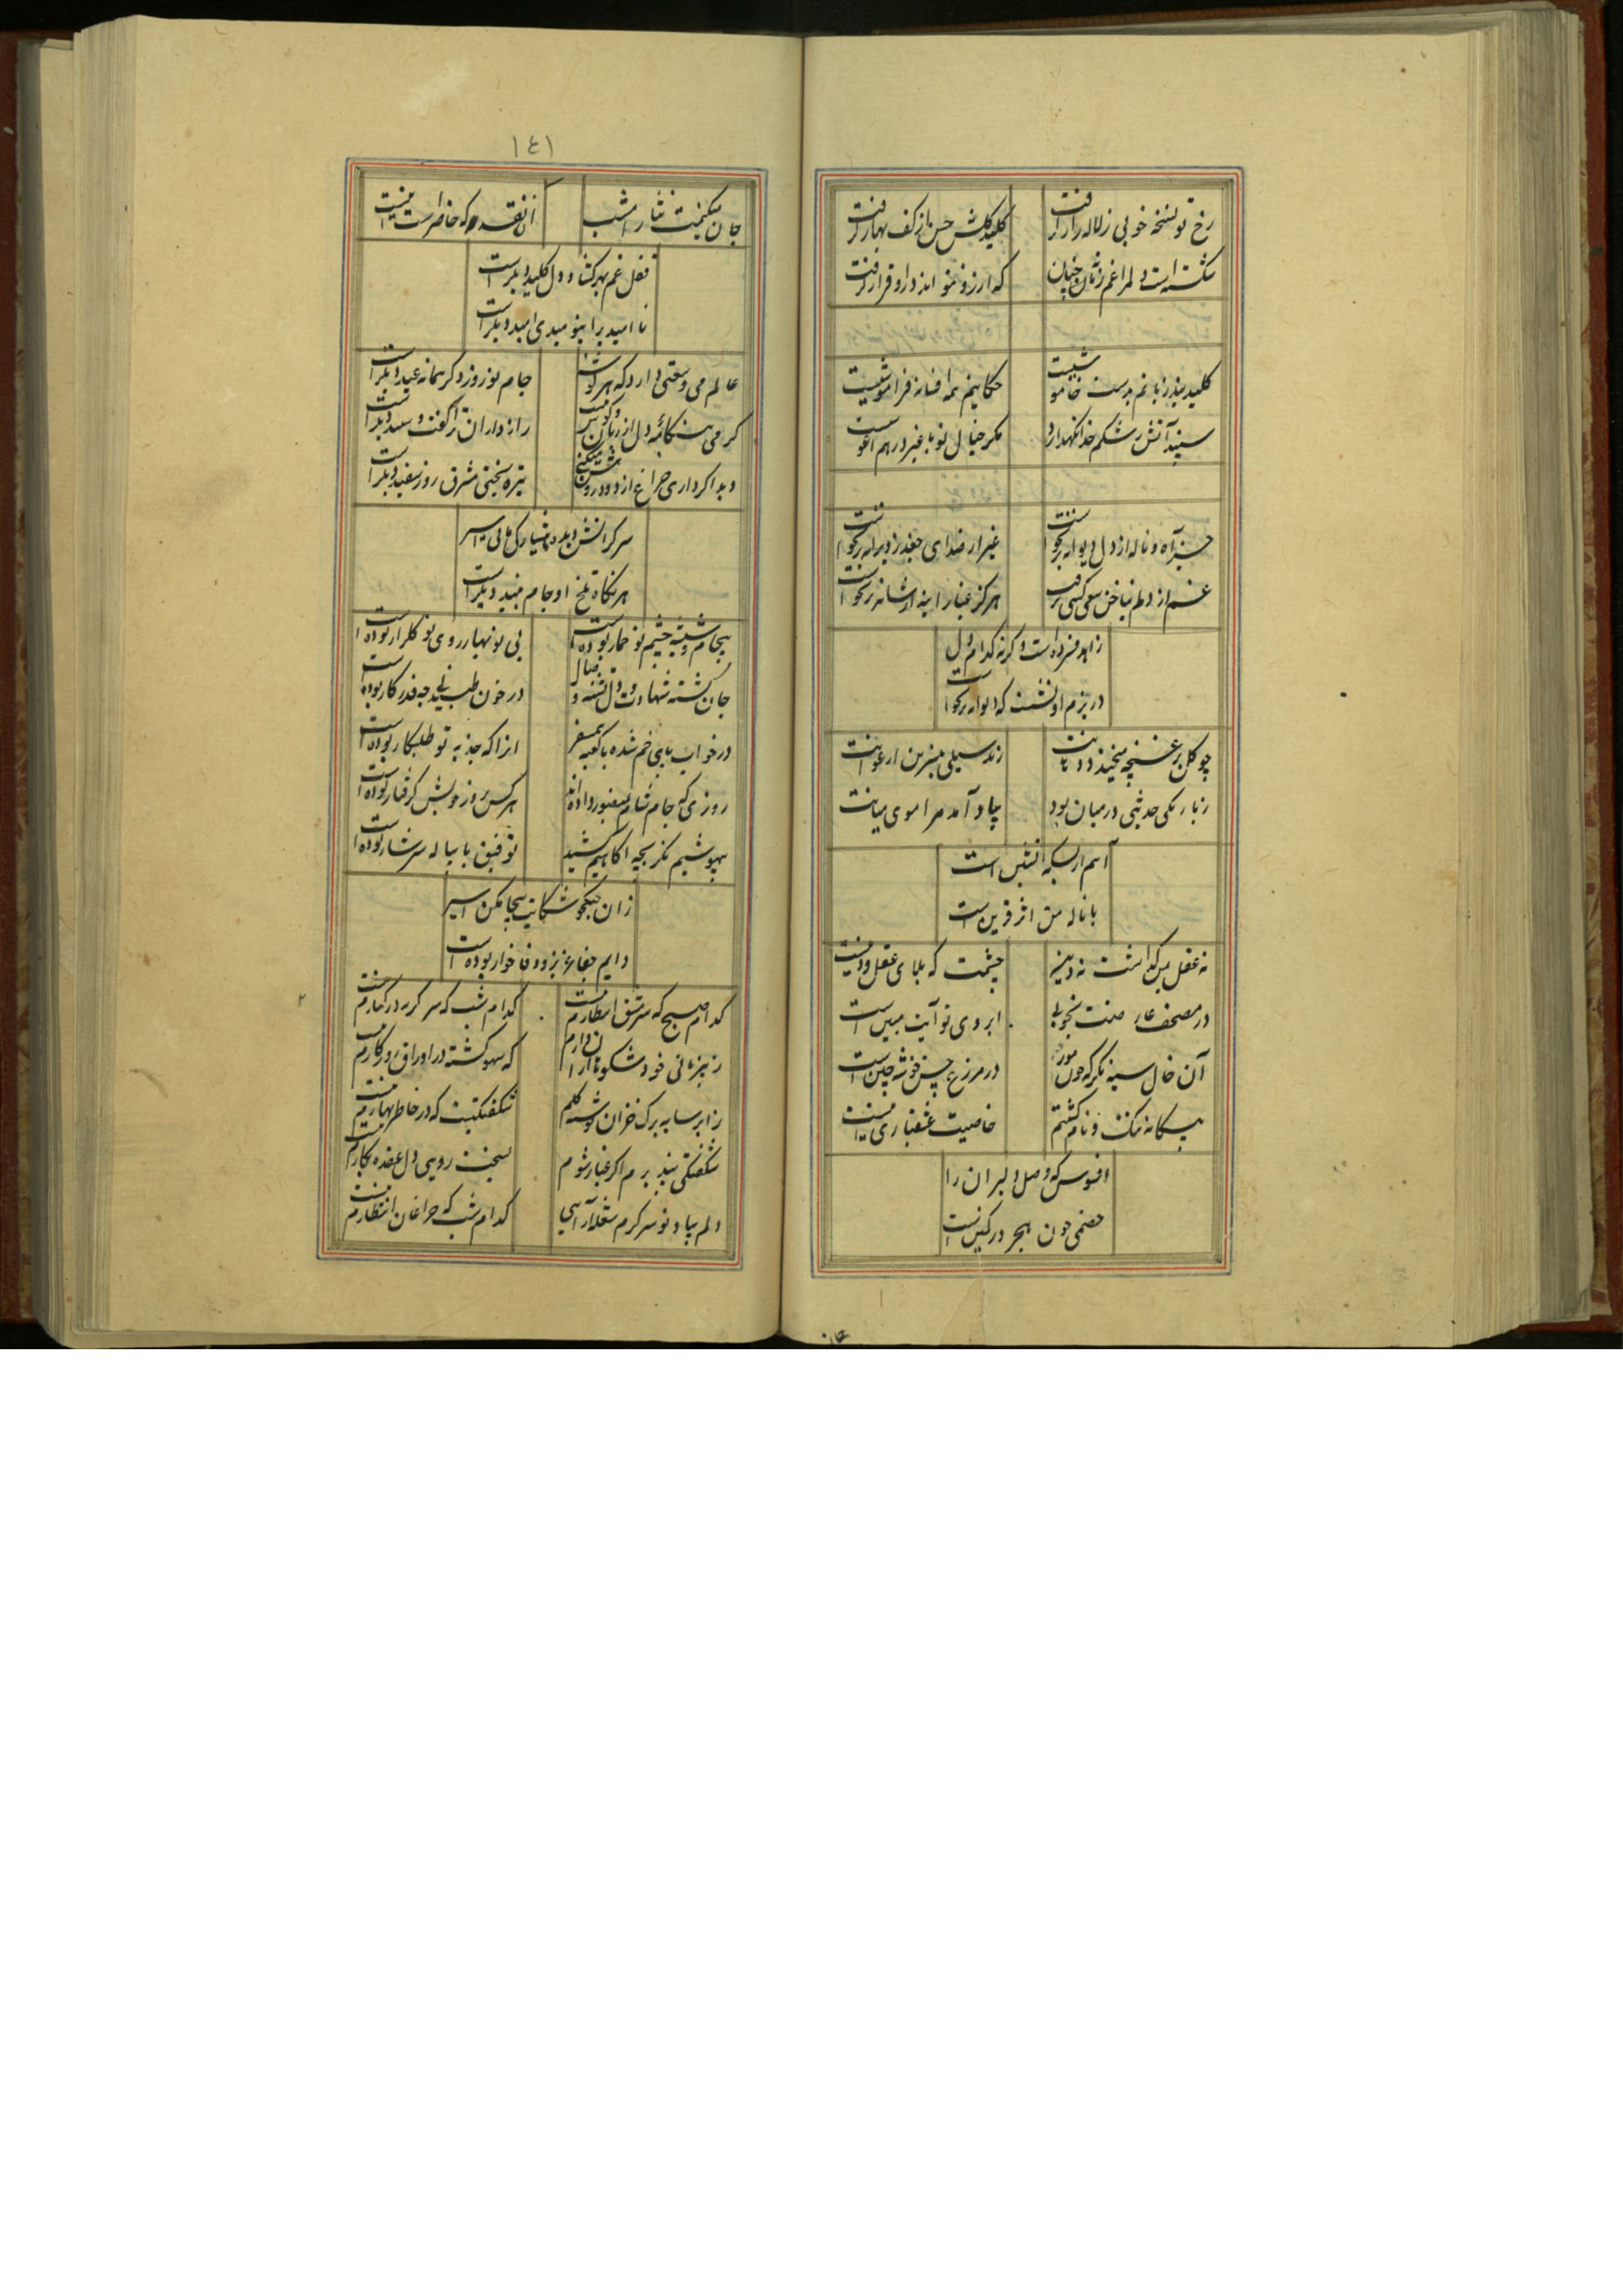 رخ تو نسخه خوبی ز لاله زار گرفت کلید گلشن حسن از کف بهار گرفت
شکسته است دلم را غم زمان چنان که آرزو نتواند درو قرار گرفت
کلید بند زبانم بدست خاموشیست حکایتم همه افسانه فراموشیست
سپند آتش رشکم خدا نگهدارد مگر خیال تو با غیر در هم آغوشیست
جز آه و ناله از دل دیوانه برنخواست غیر از صدای جغد ز ویرانه برنخواست
غم از دلم بناخن سعی کسی نرفت هرگز غبار اینه از شانه برنخواست
زاهد فسرده است وگرنه کدام دل
در بزم او نشست که دیوانه برنخواست
چو گل بر غنچه میخندد دهانت زند سیلی بنسرین ارغوانت
ز باریکی حدیثی در میان بود بیاد آمد مرا موی میانت
آهم از بسکه آتشین است
با ناله من اثر قرین است
نه عقل بمن گذاشت نه دین چشمت که بلای عقل و دینست
در مصحف عارضت بخوبی ابروی تو آیت مبین است
آن خال سیه نگر که چون مور در مزرع حسن خوشه چین است
بیگانه ننگ و نام گشتم خاصیت عشقبازی اینست
افسوس که وصل دلبران را
خصمی چون هجر در کمین است
۱٤۱
جان میکنمت نثار امشب آن نقد که حاضر است اینست
قفل غم بهر گشاد دل کلید دیگر است
نا امید یرا بنومیدی امید دیگر است
عالم می وسعتی دارد که هر گوشه‌اش جام نوروز دگر پیمانه عید دیگر است
گرمی هنگامه دل از زبان گوش نیست رازداران ترا گفت و شنید دیگر است
دیده اگر داری چراغ از دود روشن میکنی تیره بختی مشرق روز سفید دیگر است
سرگرانش دیده هشیار کی باشی اسیر
هر نگاه تلخ او جام نبید دیگر است
بیجام و شیشه چشم تو خمار بوده است بی نوبهار روی تو گلزار بوده است
جان کشته شهادت و دل تشنه وصال در خون طپیدنم چه قدر کار بوده است
در خواب پای خم شده با کعبه همسفر انرا که جذبه تو طلبکار بوده است
روزی که جام شادی بمنصور داده اند هر کس بروز خویش گرفتار بوده است
بیهوشیم نگر بچه آگاهیم کشید توفیق با پیاله سرشار بوده است
زان جنگجو شکایت بیجا مکن اسیر
دایم جفا عزیز و وفا خوار بوده است
کدام صبح که سرمشق انتظارم نیست کدام شب که سر گریه در کنارم نیست
ز بیزبانی خود شکوها دارم که سهو گشته در اوراق روزگارم نیست
ز ابر سایه برگ خزان گلم شکفتگیست که در خاطر بهارم نیست
شکفتگی بپذیرم اگر غبار شوم بسخت رویی دل عقده بکارم نیست
دلم بیاد تو سرگرم شعله آرایی کدام شب که چراغان انتظارم نیست